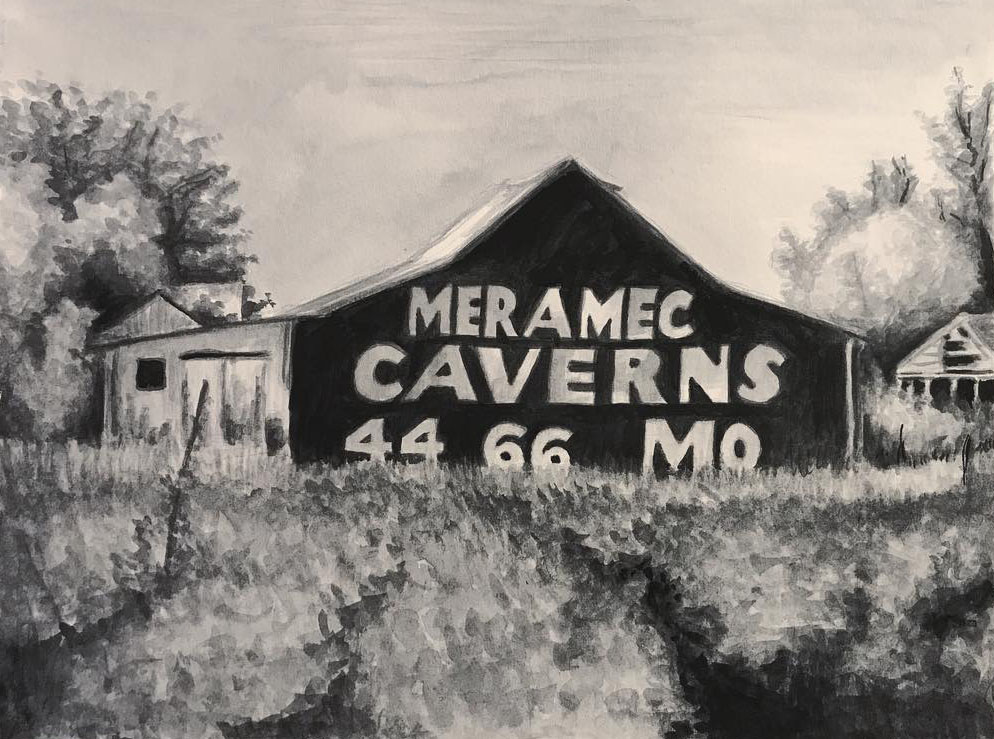 MERAMEC
CAVERNS
44 66 MO